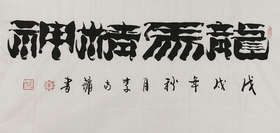 龍馬精神
戊戌年秋月李
書